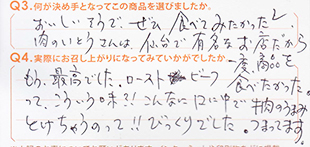 Q3.何が決め手となってこの商品を選びましたか。
おいしそうで ぜひ 食べてみたかった
肉のいとうさんは、仙台で有名なお店だから
一度 商品を
食べたかった。
Q4.実際にお召し上がりになってみていかがでしたか。
もう、最高でした。ローストビーフ
って、こういう味?!こんなに口に中で牛肉のうまみ
とけちゃうのって!!びっくりでした。うまってます。